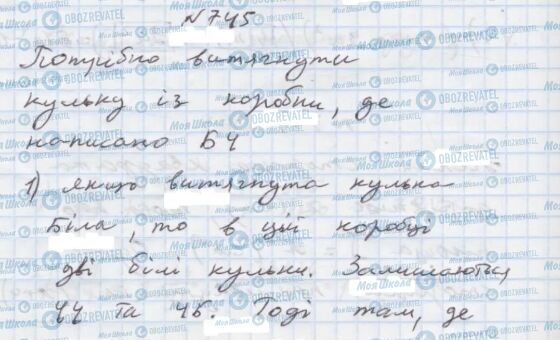 №745
Потрібно витягнути
кульку із коробки, де
написано БЧ
1) якщо витягнута кулька
біла, то в цій коробці
дві білі кульки. Залишаються
ЧЧ та ЧБ. Тоді там, де